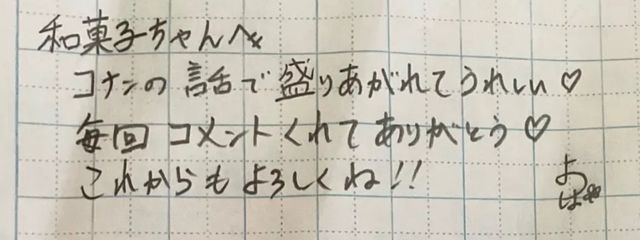 和菓子ちゃんへ
コナンの話で盛りあがれてうれしい♡
毎回コメントくれてありがとう♡
これからもよろしくね!!